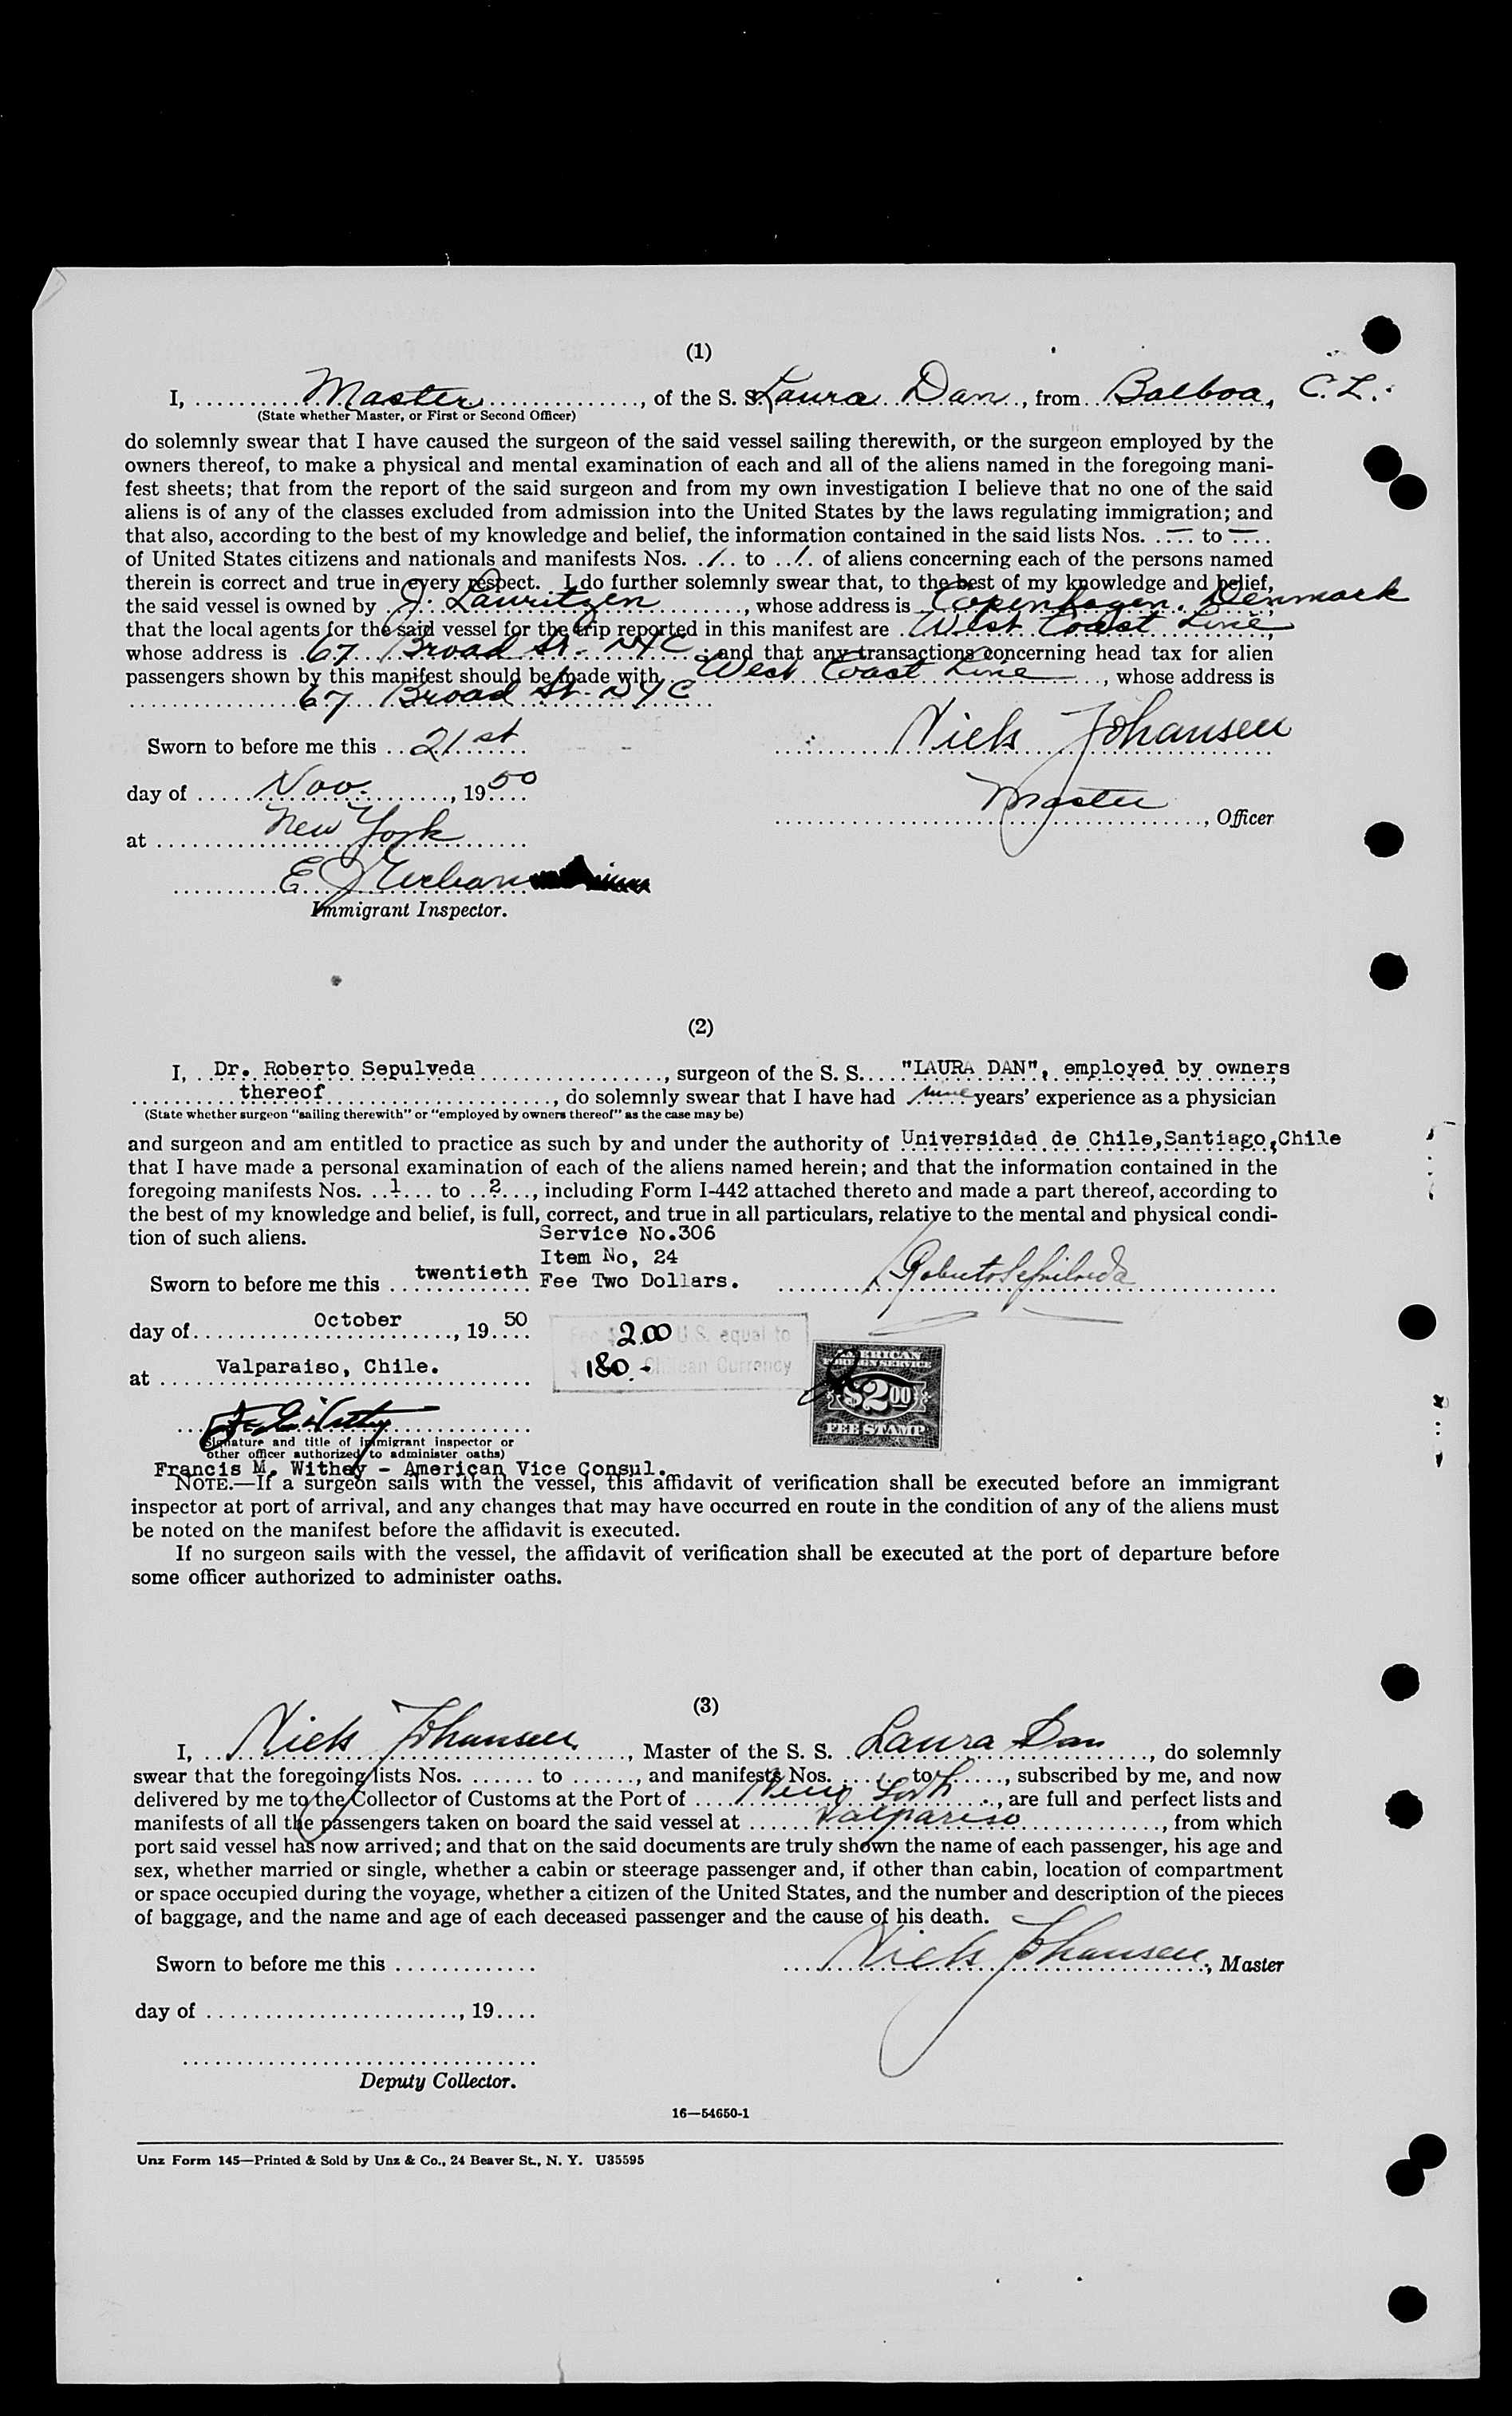 (1)
I, Master, of the S. S. Laura Dan, from Balboa, C.Z.
(State whether Master, or First or Second Officer)
do solemnly swear that I have caused the surgeon of the said vessel sailing therewith, or the surgeon employed by the
owners thereof, to make a physical and mental examination of each and all of the aliens named in the foregoing mani-
fest sheets; that from the report of the said surgeon and from my own investigation I believe that no one of the said
aliens is of any of the classes excluded from admission into the United States by the laws regulating immigration; and
that also, according to the best of my knowledge and belief, the information contained in the said lists Nos. — to —
of United States citizens and nationals and manifests Nos. 1 to 1 of aliens concerning each of the persons named
therein is correct and true in every respect. I do further solemnly swear that, to the best of my knowledge and belief,
the said vessel is owned by J. Lauritzen, whose address is Copenhagen, Denmark
that the local agents for the said vessel for the trip reported in this manifest are West Coast Line,
whose address is 67 Broad St. NYC; and that any transactions concerning head tax for alien
passengers shown by this manifest should be made with West Coast Line, whose address is
67 Broad St. NYC
Sworn to before me this 21st
Niels Johansen
day of Nov., 1950
Master, Officer
at New York
E J
Immigrant Inspector.
(2)
I, Dr. Roberto Sepulveda, surgeon of the S. S. "LAURA DAN", employed by owners
thereof, do solemnly swear that I have had nine years' experience as a physician
(State whether surgeon "sailing therewith" or "employed by owners thereof" as the case may be)
and surgeon and am entitled to practice as such by and under the authority of Universidad de Chile, Santiago, Chile
that I have made a personal examination of each of the aliens named herein; and that the information contained in the
foregoing manifests Nos. 1 to 2, including Form I-442 attached thereto and made a part thereof, according to
the best of my knowledge and belief, is full, correct, and true in all particulars, relative to the mental and physical condi-
tion of such aliens.
Service No.306
Item No, 24
Sworn to before me this twentieth Fee Two Dollars.
Roberto Sepulveda
day of October, 1950
Fee $ 2.00 U.S. equal to
$ 180.- Chilean Currency
at Valparaiso, Chile.
AMERICAN
FOREIGN SERVICE
$2.00
FEE STAMP
(Signature and title of immigrant inspector or
other officer authorized to administer oaths)
Francis M. Withey - American Vice Consul.
NOTE.—If a surgeon sails with the vessel, this affidavit of verification shall be executed before an immigrant
inspector at port of arrival, and any changes that may have occurred en route in the condition of any of the aliens must
be noted on the manifest before the affidavit is executed.
If no surgeon sails with the vessel, the affidavit of verification shall be executed at the port of departure before
some officer authorized to administer oaths.
(3)
I, Niels Johansen, Master of the S. S. Laura Dan, do solemnly
swear that the foregoing lists Nos. ...... to ......, and manifests Nos. ...... to ......, subscribed by me, and now
delivered by me to the Collector of Customs at the Port of New York, are full and perfect lists and
manifests of all the passengers taken on board the said vessel at Valpariso, from which
port said vessel has now arrived; and that on the said documents are truly shown the name of each passenger, his age and
sex, whether married or single, whether a cabin or steerage passenger and, if other than cabin, location of compartment
or space occupied during the voyage, whether a citizen of the United States, and the number and description of the pieces
of baggage, and the name and age of each deceased passenger and the cause of his death.
Sworn to before me this .............
Niels Johansen, Master
day of ........................, 19....
Deputy Collector.
16—54650-1
Unz Form 145—Printed & Sold by Unz & Co., 24 Beaver St., N. Y. U35595